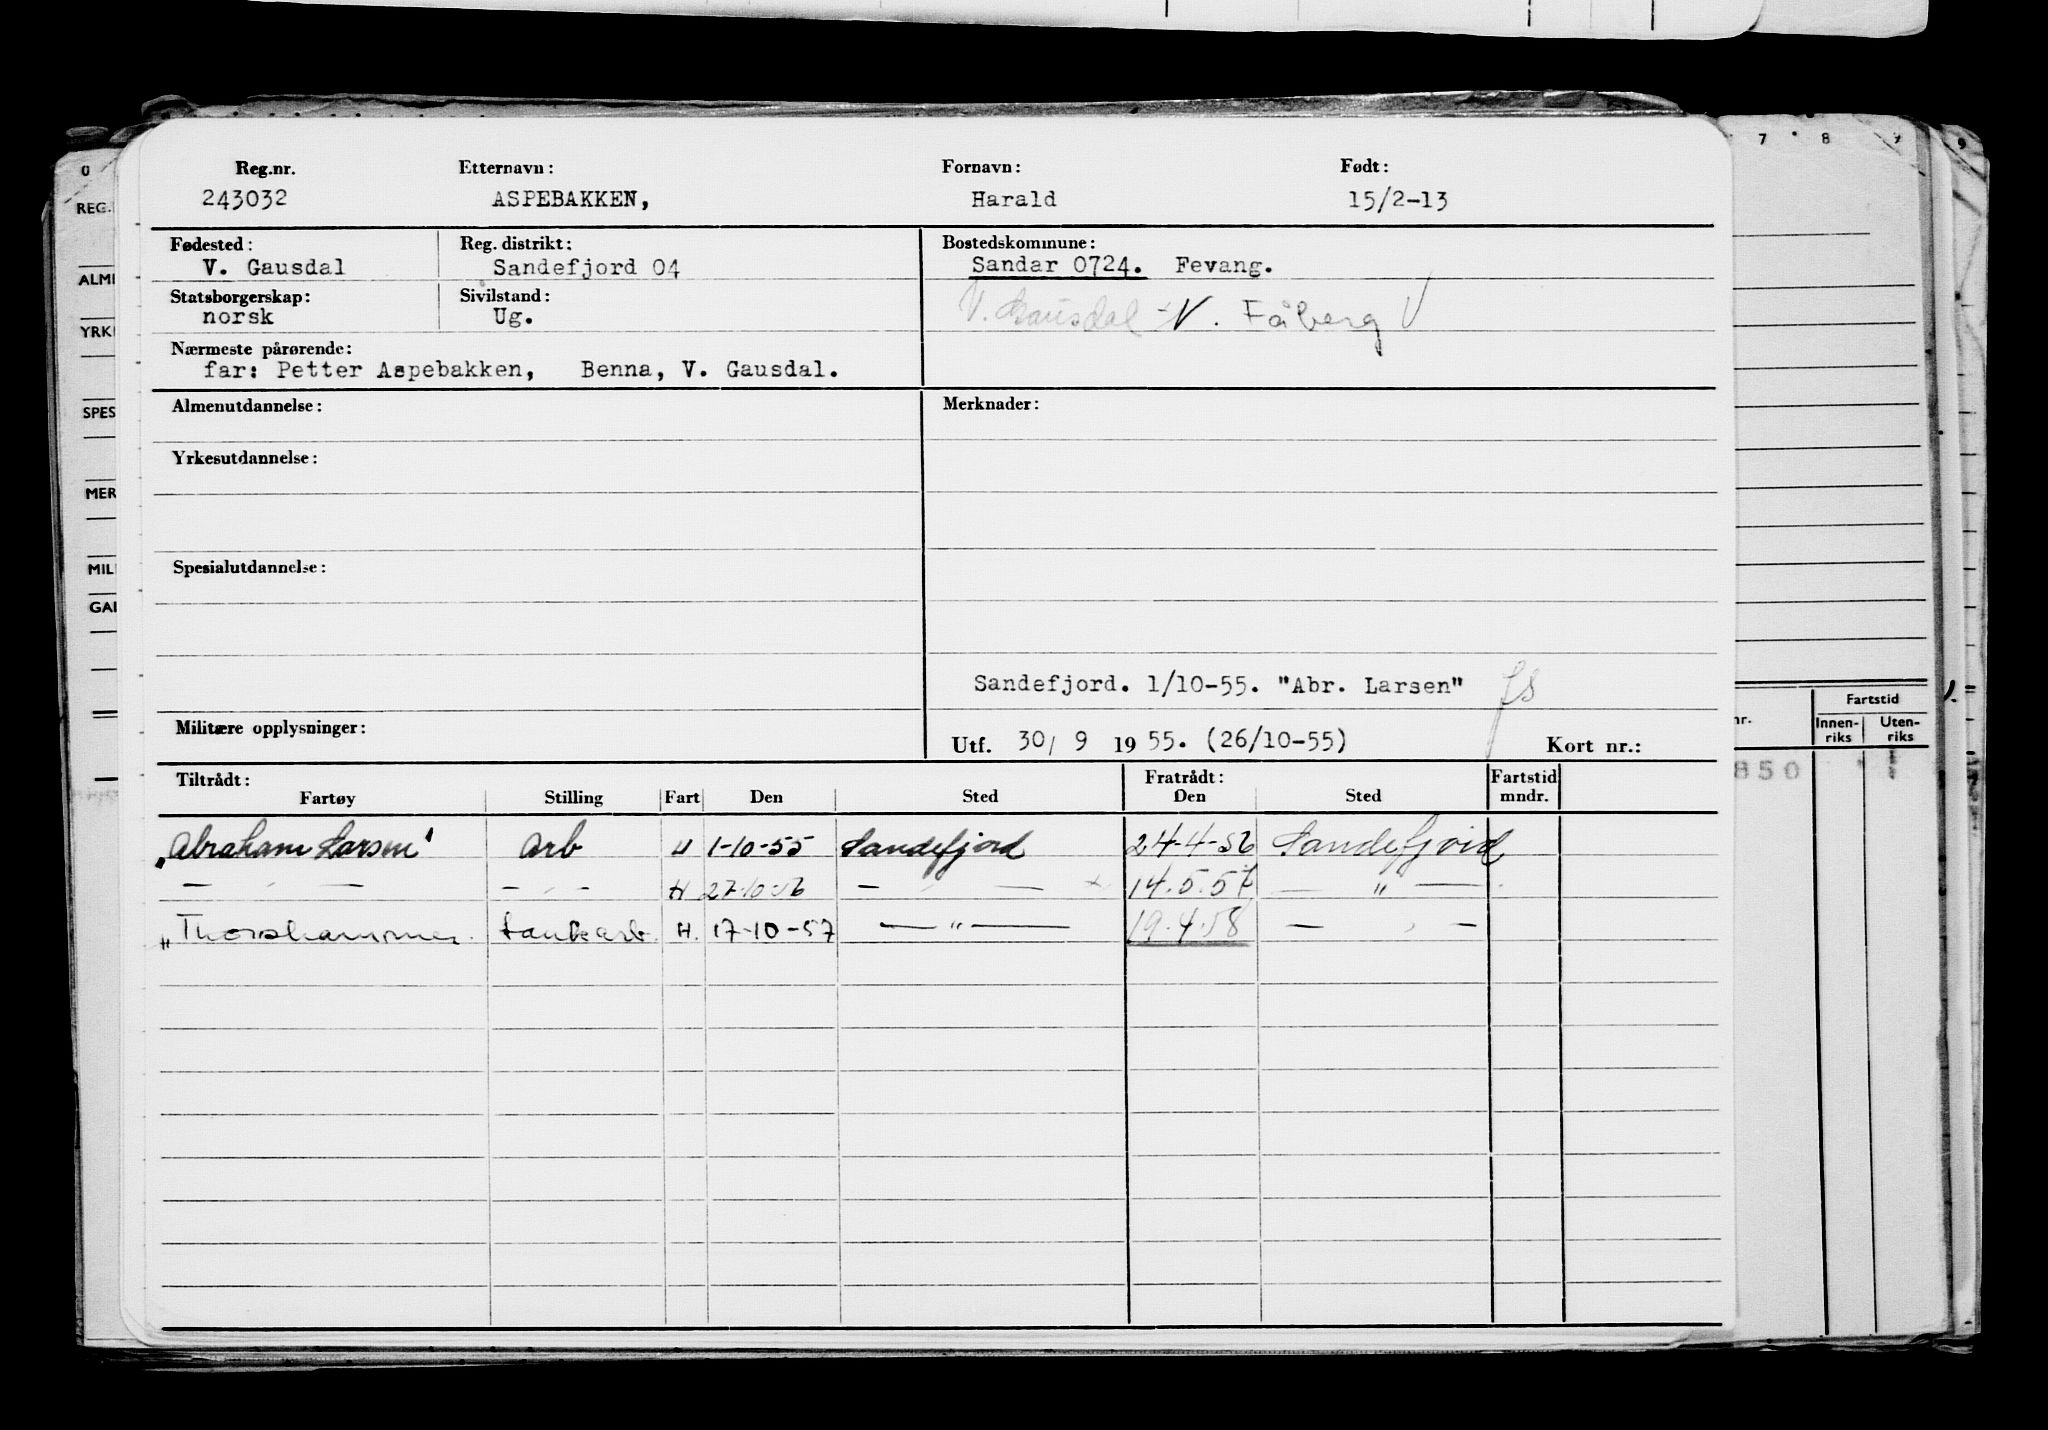 Reg.nr. Etternavn: Fornavn: Født:
243032 ASPEBAKKEN, Harald 15/2-13
Fødested: Reg. distrikt: Bostedskommune:
V. Gausdal Sandefjord 04 Sandar 0724. Fevang.
Statsborgerskap: Sivilstand:
norsk Ug. V. Gausdal V. Fåberg V
Nærmeste pårørende:
far: Petter Aspebakken, Benna, V. Gausdal.
Almenutdannelse: Merknader:
Yrkesutdannelse:
Spesialutdannelse:
Sandefjord. 1/10-55. "Abr. Larsen"
Militære opplysninger: Utf. 30/ 9 19 55. (26/10-55) Kort nr.:
Tiltrådt: Fratrådt: Fartstid
Fartøy Stilling Fart Den Sted Den Sted mndr.
„Abraham Larsen" arb H 1-10-55 Sandefjord 24-4-56 Sandefjord
— " — — " — H 27-10-56 — " — 14.5.57 — " —
„Thorshammer. tankarb. H. 17-10-57 — " — 19.4.58 — " —
0 7 8 9 9
REG.
ALME
YRKE
SPES
MER
MIL
GAL
Fartstid
nr. Innen-riks Uten-riks
850